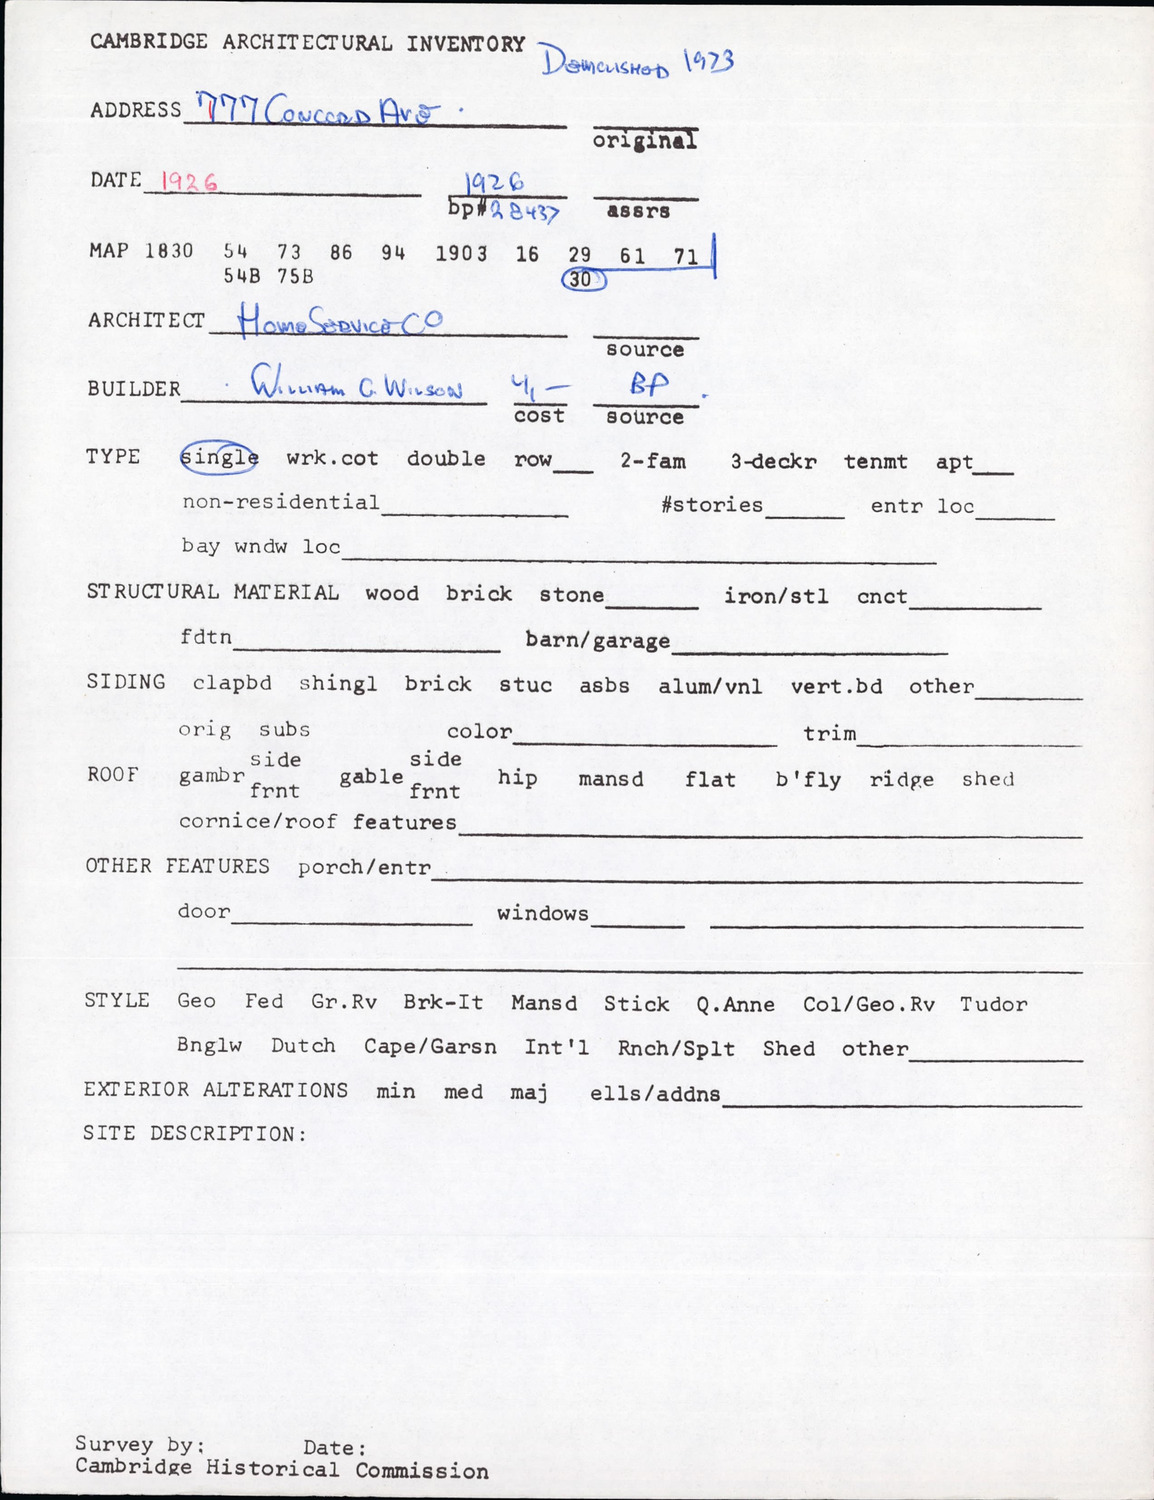 CAMBRIDGE ARCHITECTURAL INVENTORY DEMOLISHED 1973
ADDRESS 777 CONCORD AVE.
original
DATE 1926 1926
bp# 28437 assrs
MAP 1830 54 73 86 94 1903 16 29 61 71
54B 75B 30
ARCHITECT HOME SERVICE CO
source
BUILDER WILLIAM G. WILSON 4,— BP.
cost source
TYPE single wrk.cot double row___ 2-fam 3-deckr tenmt apt___
non-residential___ #stories___ entr loc___
bay wndw loc___
STRUCTURAL MATERIAL wood brick stone___ iron/stl cnct___
fdtn___ barn/garage___
SIDING clapbd shingl brick stuc asbs alum/vnl vert.bd other___
orig subs color___ trim___
side side
ROOF gambr gable hip mansd flat b'fly ridge shed
frnt frnt
cornice/roof features___
OTHER FEATURES porch/entr___
door___ windows___
STYLE Geo Fed Gr.Rv Brk-It Mansd Stick Q.Anne Col/Geo.Rv Tudor
Bnglw Dutch Cape/Garsn Int'l Rnch/Splt Shed other___
EXTERIOR ALTERATIONS min med maj ells/addns___
SITE DESCRIPTION:
Survey by: Date:
Cambridge Historical Commission